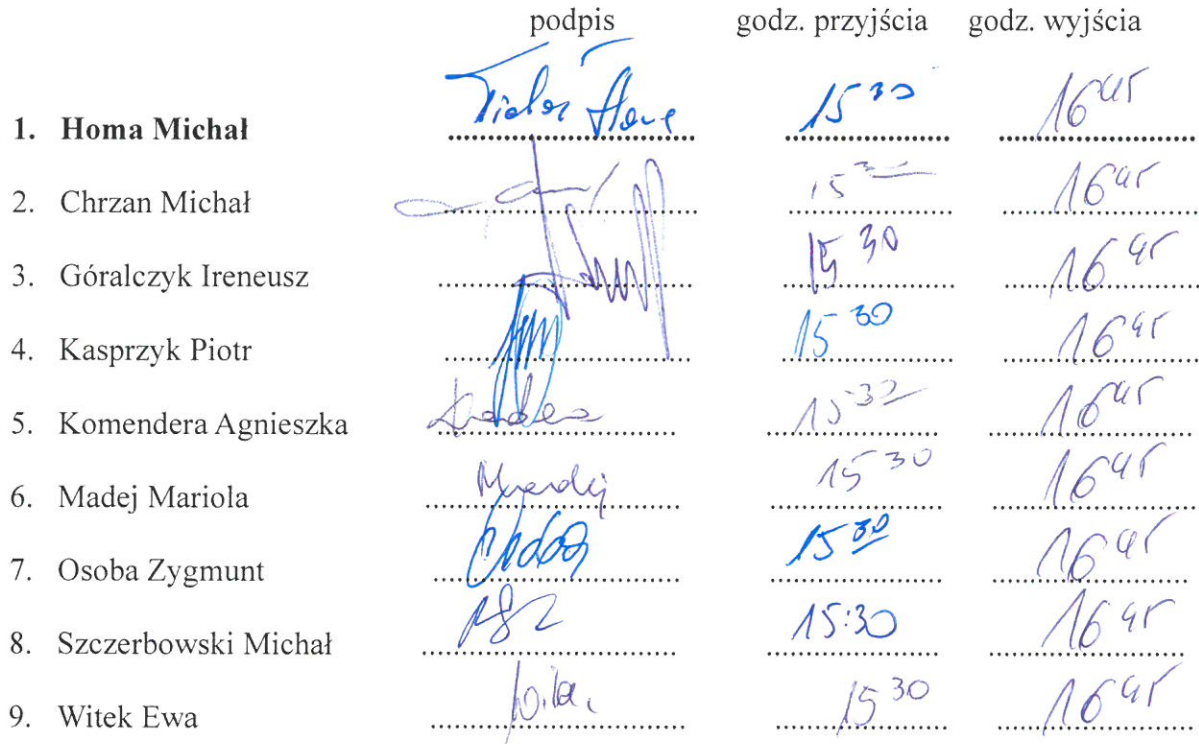 podpis godz. przyjścia godz. wyjścia
1. Homa Michał 15 30 16 45
2. Chrzan Michał 15 30 16 45
3. Góralczyk Ireneusz 15 30 16 45
4. Kasprzyk Piotr 15 30 16 45
5. Komendera Agnieszka 15 30 16 45
6. Madej Mariola 15 30 16 45
7. Osoba Zygmunt 15 30 16 45
8. Szczerbowski Michał 15:30 16 45
9. Witek Ewa 15 30 16 45